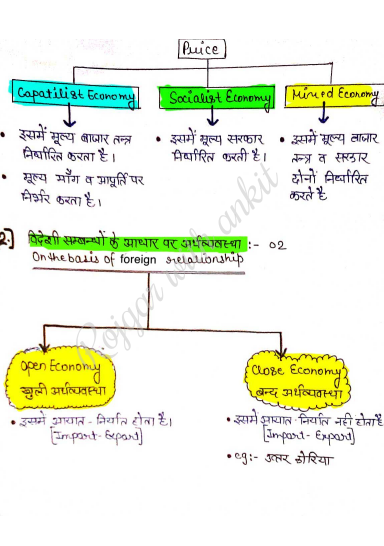 Price
Capatilist Economy
Socialist Economy
Mixed Economy
• इसमें मूल्य बाजार तन्त्र
निर्धारित करता है।
• मूल्य माँग व आपूर्ति पर
निर्भर करता है।
• इसमें मूल्य सरकार
निर्धारित करती है।
• इसमें मूल्य बाजार
तन्त्र व सरकार
दोनों निर्धारित
करते है
2.) विदेशी सम्बन्धों के आधार पर अर्थव्यवस्था :- 02
On the basis of foreign relationship
Open Economy
खुली अर्थव्यवस्था
• इसमें आयात - निर्यात होता है।
[Import-Export]
Close Economy
बन्द अर्थव्यवस्था
• इसमें आयात-निर्यात नही होता है
[Import-Export]
• eg:- उत्तर कोरिया
Rojgar with ankit